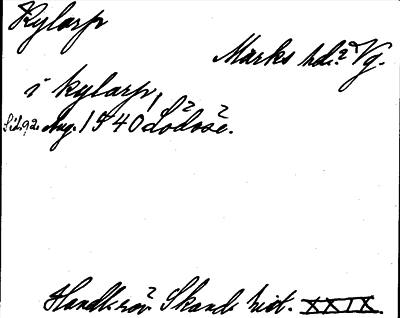 Kylarp
Marks hd. Vg.
i kylarp,
Sid. 92. Aug. 1540 Lödöse.
Handl. rör. Skand. hist. XXIX.